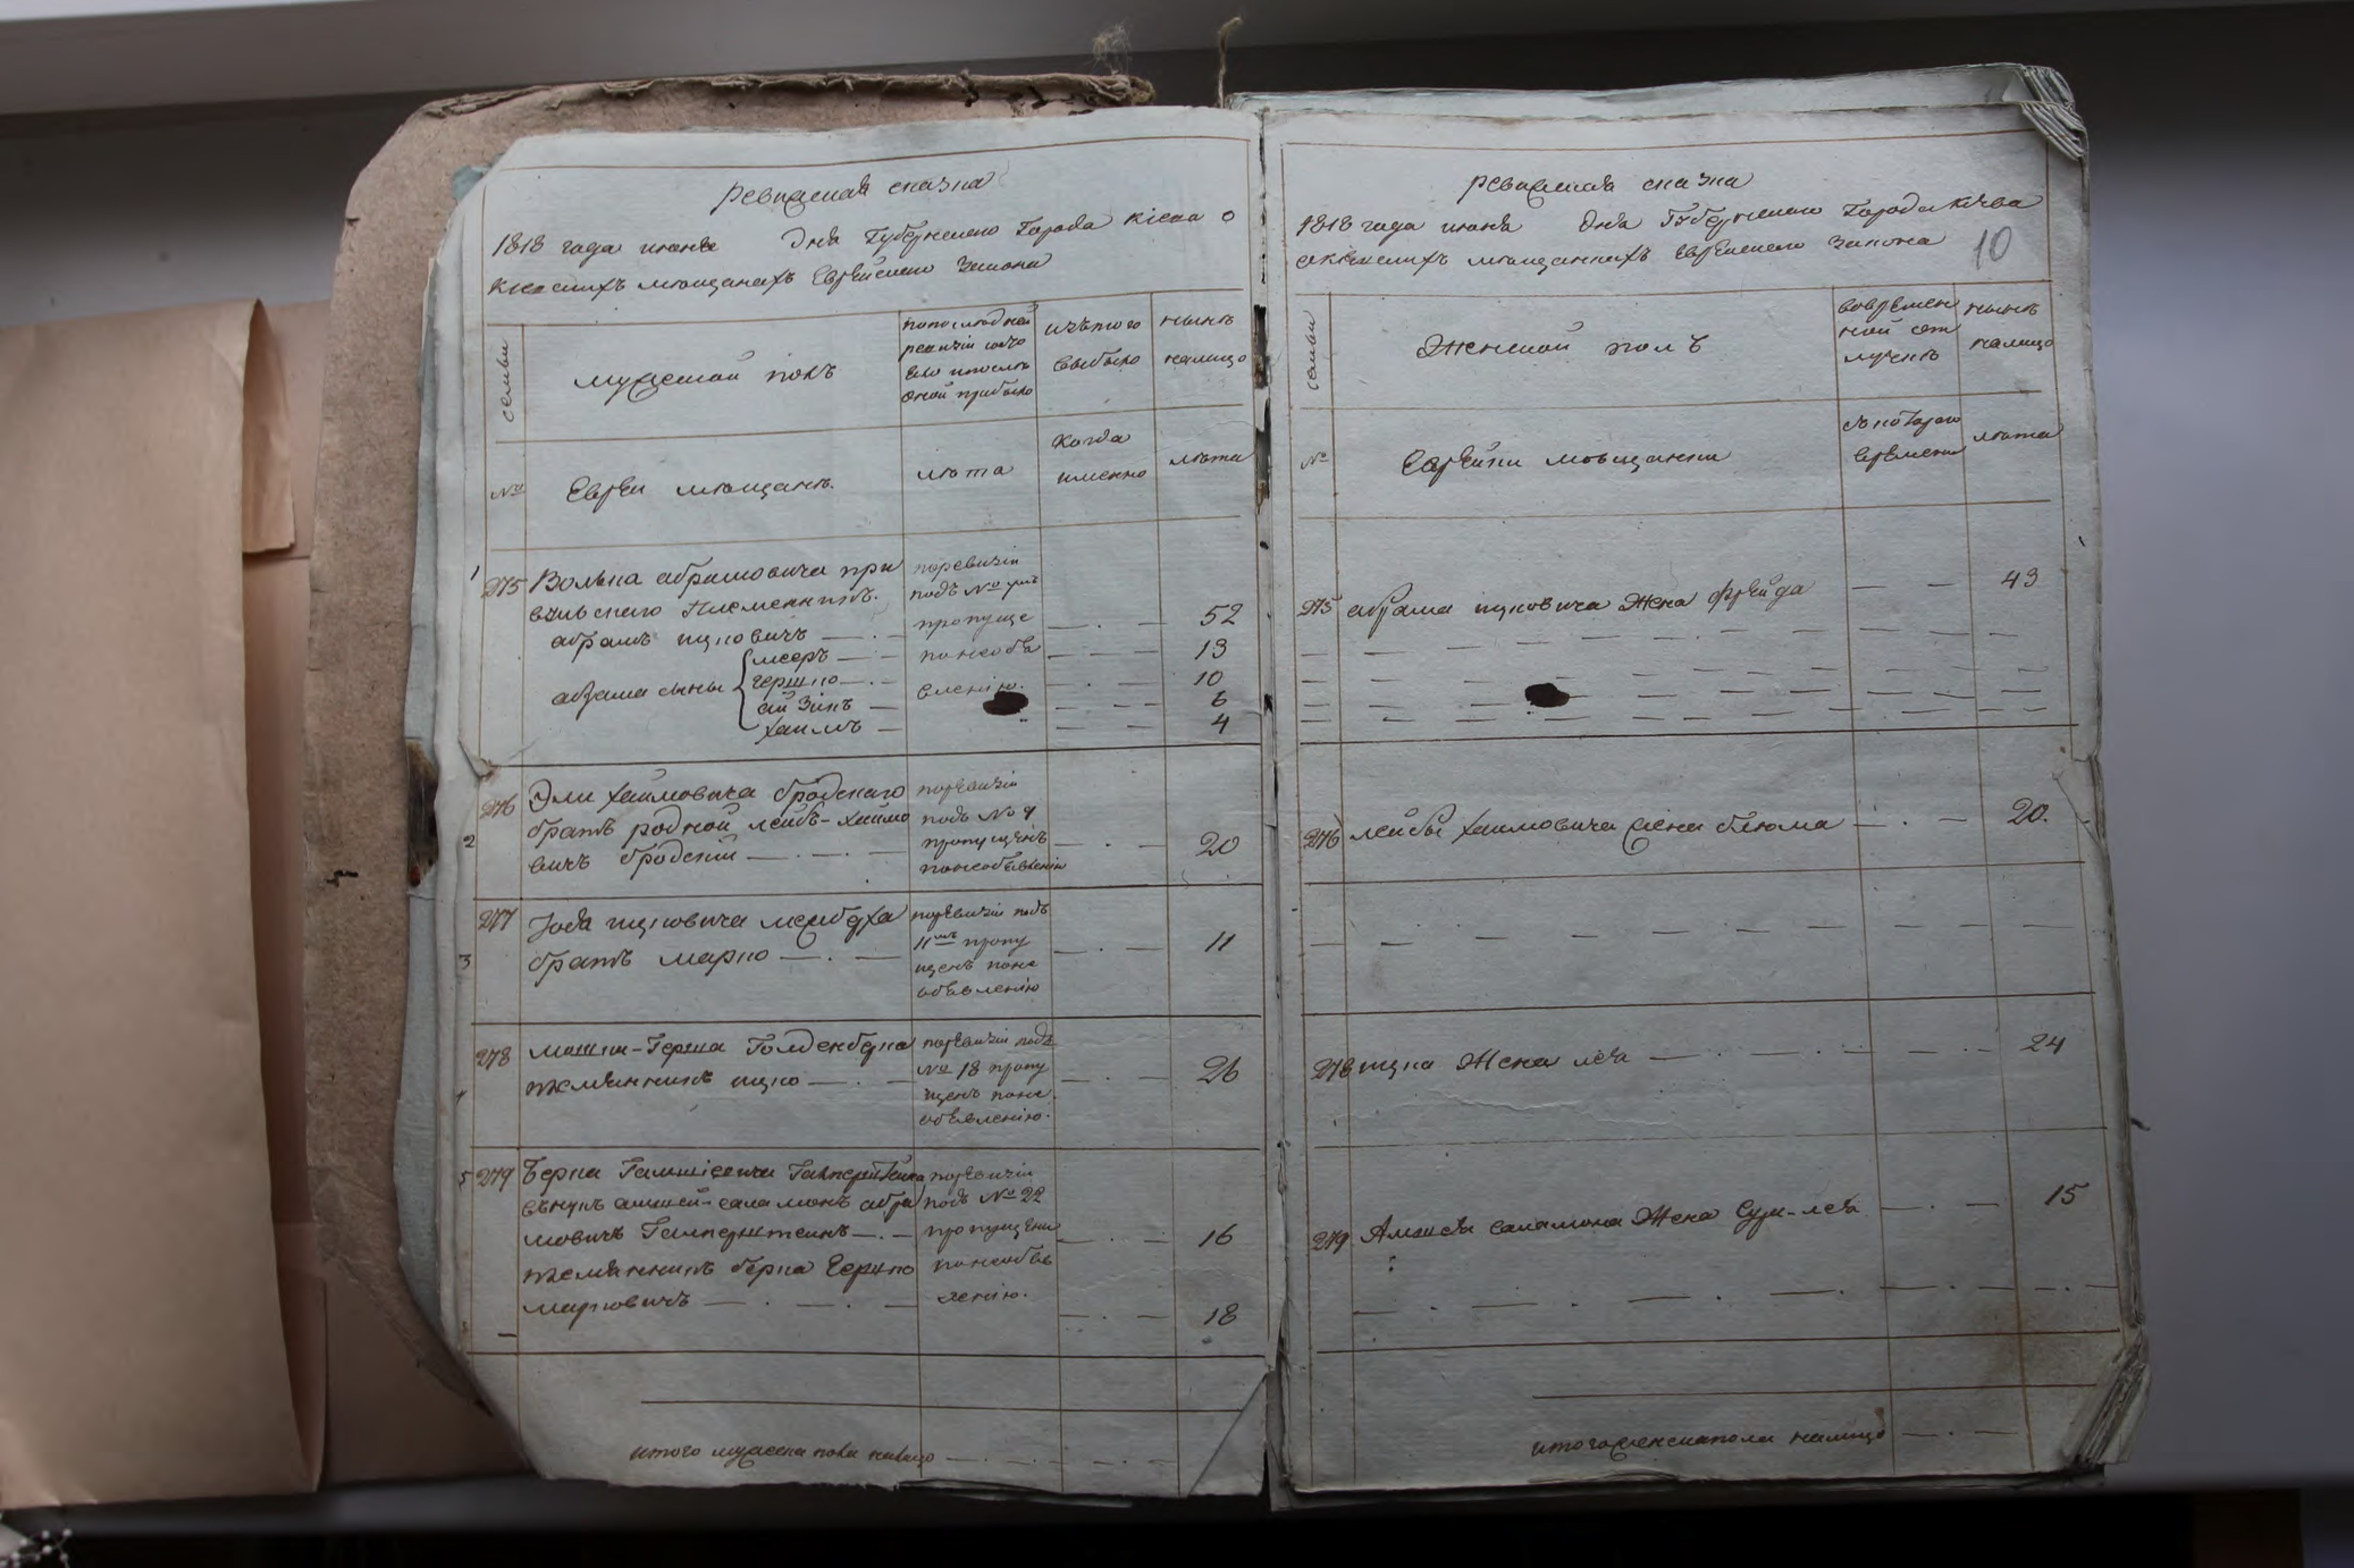 ревижская сказка
1818 года июня Дня Губернского Города Кіева о
Кіевскихъ мещанахъ Еврейского Закона
семьи
мужеской полъ
попоследней
ревизіи состо
яло ипосле
оной прибыло
изътого
выбыло
ныне
налицо
№
Евреи мещане.
лета
Когда
именно
лета
1
275 Волька абрамовича при
племенникъ.
абрамъ ицковичъ — . —
поревизіи
подъ №
пропуще
52
абрама сыны
мееръ — . —
понеобъя
13
гершко — . —
вленію.
10
айзикъ —
6
хаимъ —
4
276 Эли хаимовича бродскаго
2
братъ родной лейбъ-хаимо
вичъ бродскій — . — . —
поревизіи
подъ № 9
пропущенъ
понеобъявленію
20
277 Иося ицковича
3
братъ марко — . —
поревизіи подъ
11мъ пропу
щенъ поне
объявленію
11
278 мошки-Герша Голденберга
племянникъ ицко — . —
поревизіи подъ
№ 18 пропу
щенъ поне
объявленію.
26
5 279 Берка Галперштейна
внукъ амшей-саламонъ абра
мовичъ Галперштеинъ — . —
племянникъ берка Гершко
марковичъ — . — . —
поревизіи
подъ № 22
пропущени
понеобъяв
ленію.
16
18
итого мужеска пола налицо — . — . — . —
ревижская сказка
1818 года июня Дня Губернского Города Кіева
окіевскихъ мещанкахъ Еврейского Закона
10
семьи
Женской полъ
вовремен
ной от
лучке
ныне
налицо
№
Еврейки мещанки
Скотораго
времени
лета
275 абрама ицковича Жена фрейда — — 43
276 лейбы хаимовича жена блюма — . — 20.
278 ицка Жена лея — . — . — 24
279 Амшея саламона Жена Сура-лея — . — 15
итого женска пола налицо — . —